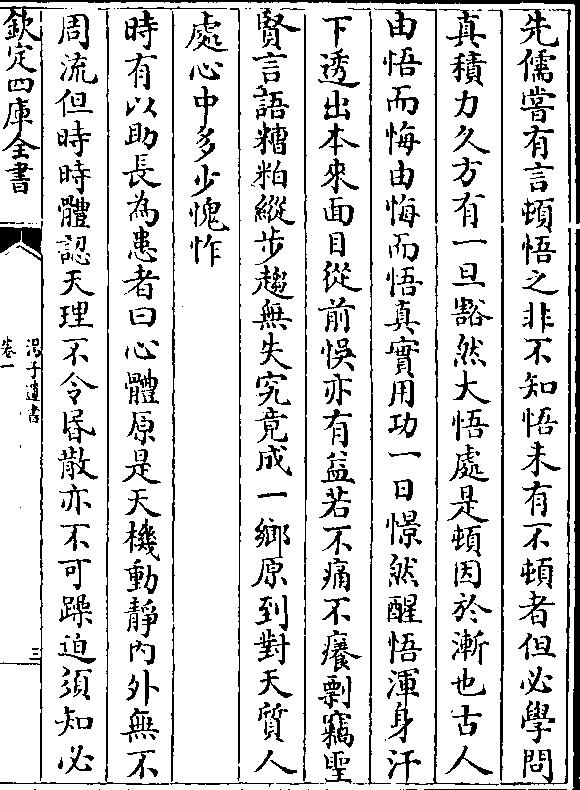 先儒嘗有言頓悟之非不知悟未有不頓者但必學問
真積力久方有一旦豁然大悟處是頓因於漸也古人
由悟而悔由悔而悟真實用功一日憬然醒悟渾身汗
下透出本來面目從前悞亦有益若不痛不癢剽竊聖
賢言語糟粕縱步趨無失究竟成一鄉原到對天質人
處心中多少愧怍
時有以助長為患者曰心體原是天機動靜內外無不
周流但時時體認天理不令昏散亦不可躁迫須知必
欽定四庫全書
湯子遺書
卷一
三